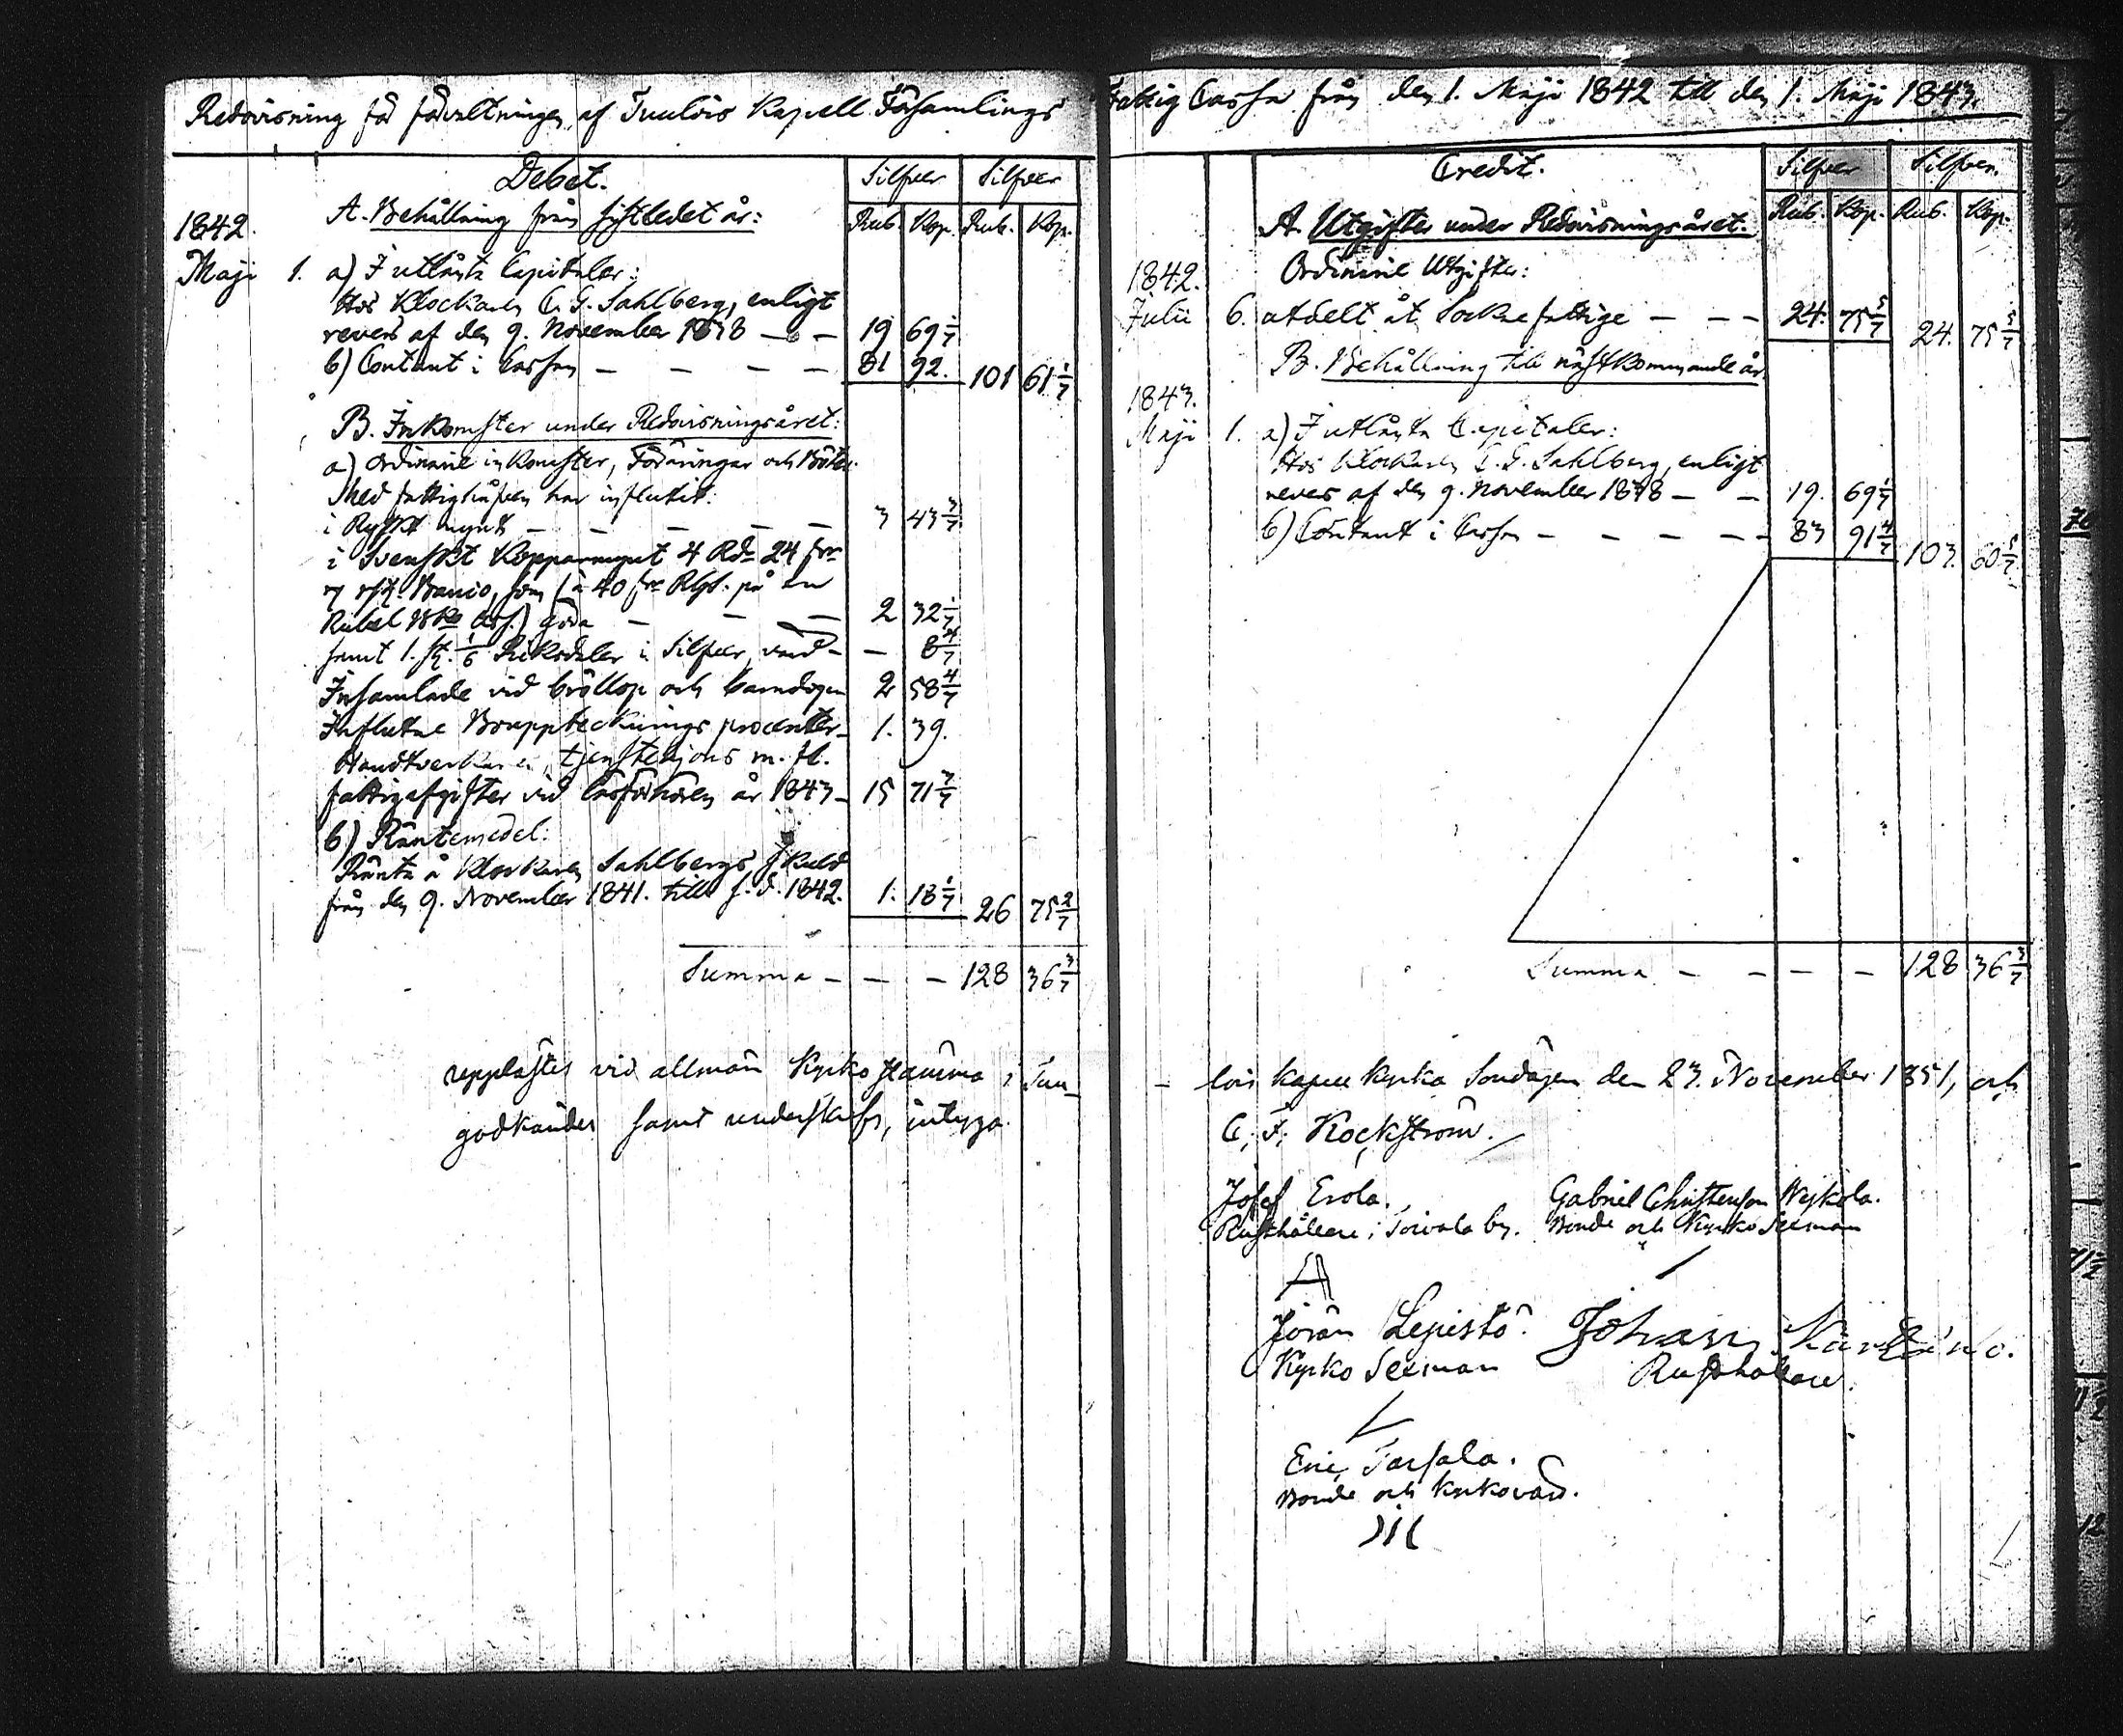 Redovisning för förvaltningen af Tuulois Kapell Församlings
Debet.
Silfver Silfver
Rub. Kop. Rub. Kop.
1842. A. Behållning från sistledet år:
Maji 1. a) I utlånta Capitaler:
Hos Klockaren C. G. Sahlberg, enligt
revers af den 9. November 1838 — — 19 69 1/7
b) Contant i Cassan — — — — 81 92. 101 61 1/7
B. Inkomster under Redovisningsåret:
a) Ordinarie inkomster, Föräringar och Böter.
Med fattighåfven har influtit:
i Ryskt mynt — — — — — 3 43 3/7
i Svenskt Kopparmynt 4 Rdr 24 sk.
Banco, som (à 40 sk. Rgs. på en
Rubel Bko Ass.) göra — — — 2 32 1/7
samt 1. st. 1/6 Riksdaler i Silfver, värd — — 8 4/7
Insamlade vid bröllop och barndopen 2 58 4/7
Influtne Bouppteckningsprocenter — 1. 39.
Handtverkares, tjenstehjons m. fl.
fattigafgifter vid läsförhören år 1843 — 15 71 3/7
b) Räntemedel:
Ränta å Klockaren Sahlbergs skuld
från den 9. November 1841. till s. d. 1842. 1. 18 1/7 26 75 2/7
Summa — — — 128 36 3/7
upplästes vid allmän Kyrkostämma i Tuu-
godkändes samt underskrefs, intyga
Fattig Cassa från den 1. Maji 1842 till den 1. Maji 1843.
Credit.
Silfver Silfver.
Rub. Kop. Rub. Kop.
A. Utgifter under Redovisningsåret.
1842. Ordinarie Utgifter:
Julii 6. utdelt åt Sockne fattige — — — 24. 75 5/7 24. 75 5/7
B. Behållning till nästkommande år.
1843.
Maji 1. a) I utlånta Capitaler:
Hos Klockaren C. G. Sahlberg, enligt
revers af den 9. November 1838 — — 19. 69 1/7
b) Contant i Cassan — — — — — 83 91 4/7 103. 60 5/7
Summa — — — — 128 36 3/7
- lois kapell kyrka Söndagen den 23. November 1851, och
C. F. Kockström.
Josef Erola. Gabriel Christenson Wejkola.
Rusthållare i Toivala by. Bonde och Kyrko Sexman
Jöran Lepistö. Johan
Kyrko Sexman Rusthållare.
Eric Tarhala.
Bonde och kyrkovärd.